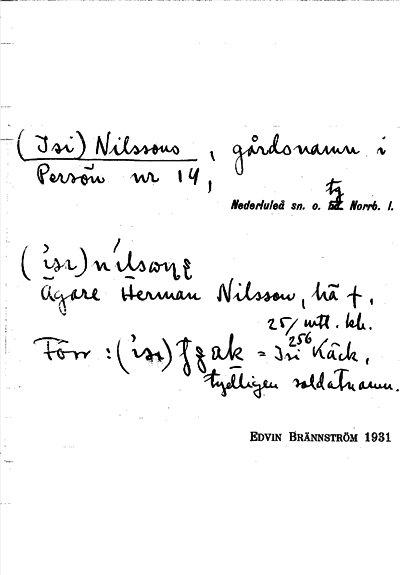 (Isi) Nilssons, gårdsnamn i
Persön nr 14,
tg
Nederluleå sn. o. Norrb. l.
Ägare Herman Nilsson, hä +,
25/256 mtl. kr.
Förr : = Isi Käck,
tydligen soldatnamn.
EDVIN BRÄNNSTRÖM 1931